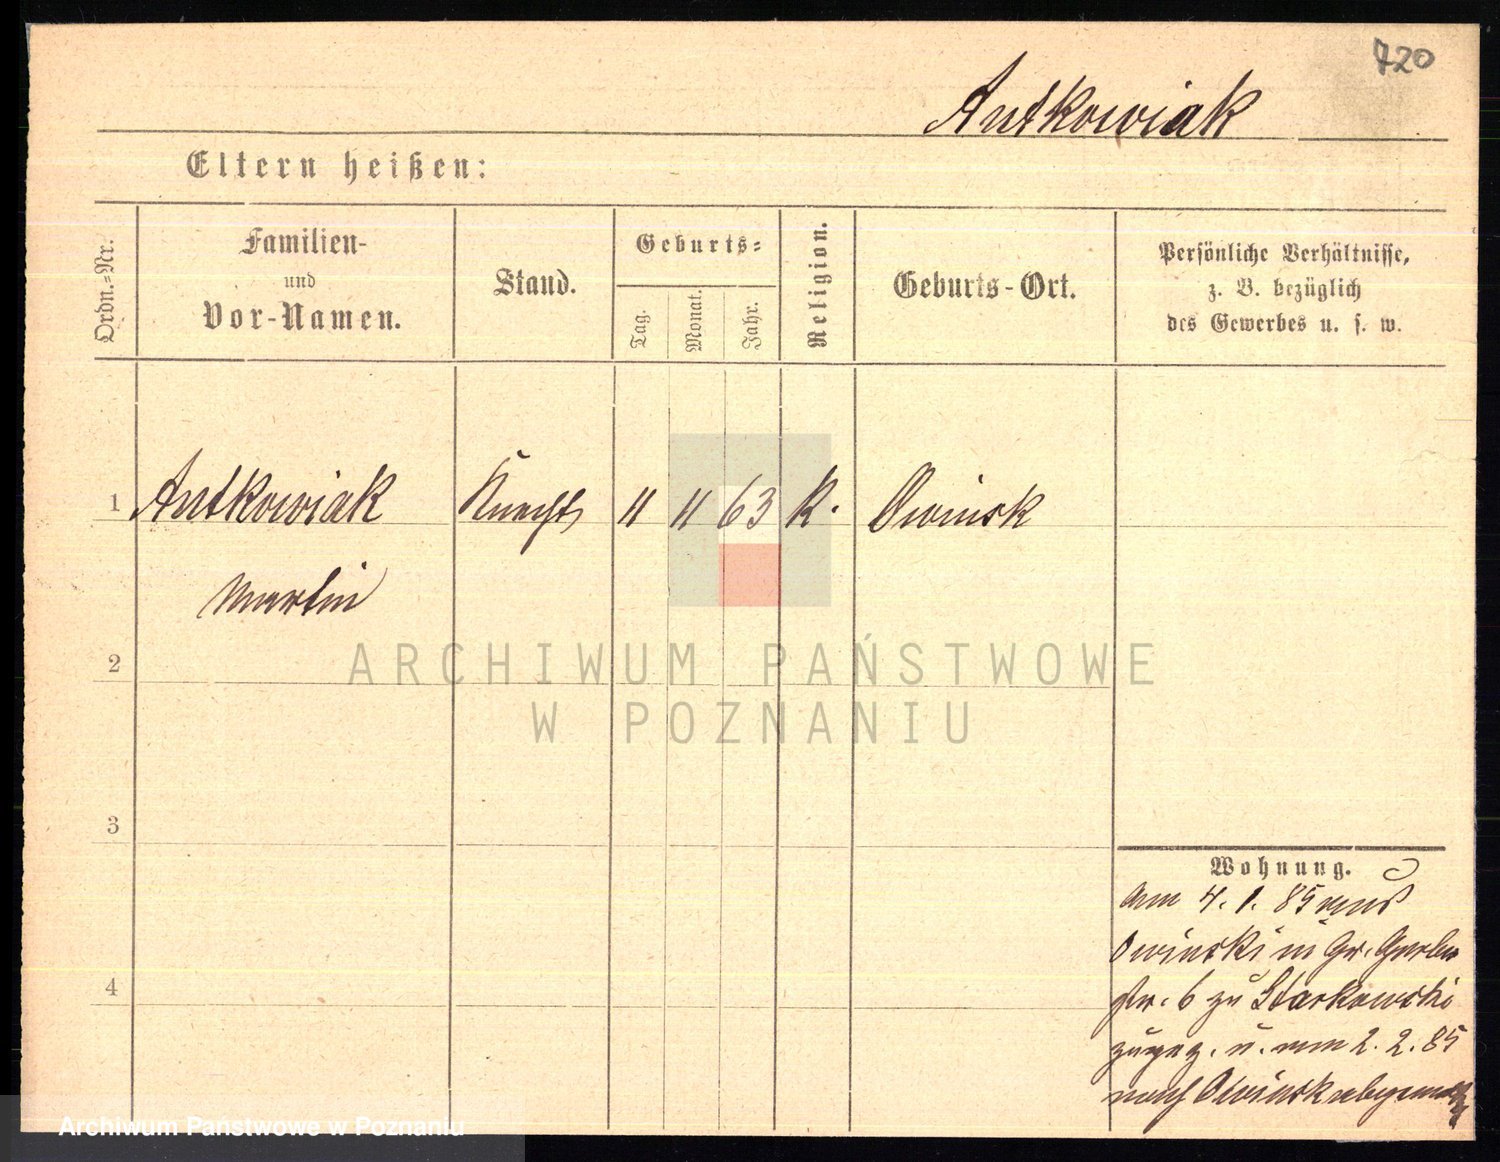 720
Antkowiak
Eltern heißen:
Ordn.=Nr.
Familien-
und
Vor-Namen.
Stand.
Geburts=
Tag.
Monat.
Jahr.
Religion.
Geburts-Ort.
Persönliche Verhältnisse,
z. B. bezüglich
des Gewerbes u. s. w.
1 Antkowiak Knecht 11 11 63 K. Owinsk
Martin
2
3
4
Wohnung.
am 4. 1. 85 aus
Owinski in Gr. Gerber
str. 6 zu Starkowski
zugez. u. am 2. 2. 85
nach Owinsk abgem
ARCHIWUM PAŃSTWOWE
W POZNANIU
Archiwum Państwowe w Poznaniu